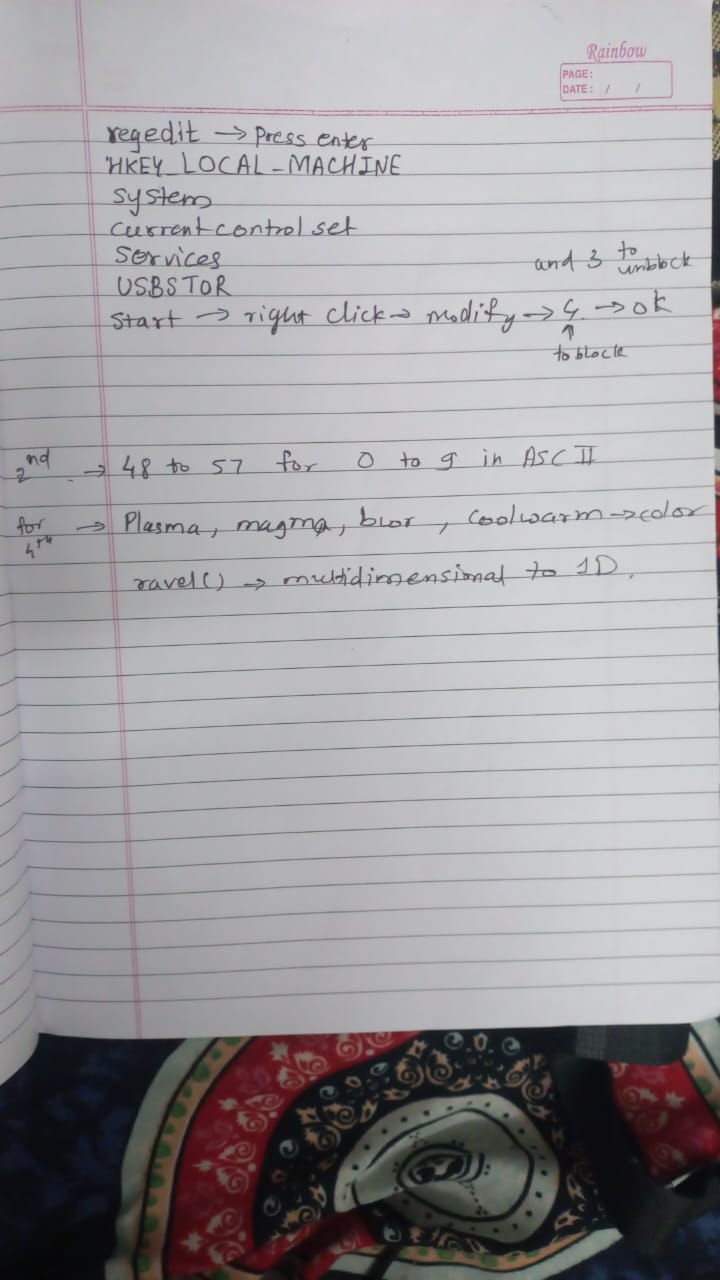 Rainbow
PAGE:
DATE: / /
regedit → Press enter
HKEY_LOCAL-MACHINE
system
current control set
services
USBSTOR
and 3 to unblock
start → right click → modify → 4 → ok
↑
to block
2nd → 48 to 57 for 0 to 9 in ASCII
for 4th → Plasma, magma, bwr, coolwarm → color
ravel() → multidimensional to 1D.